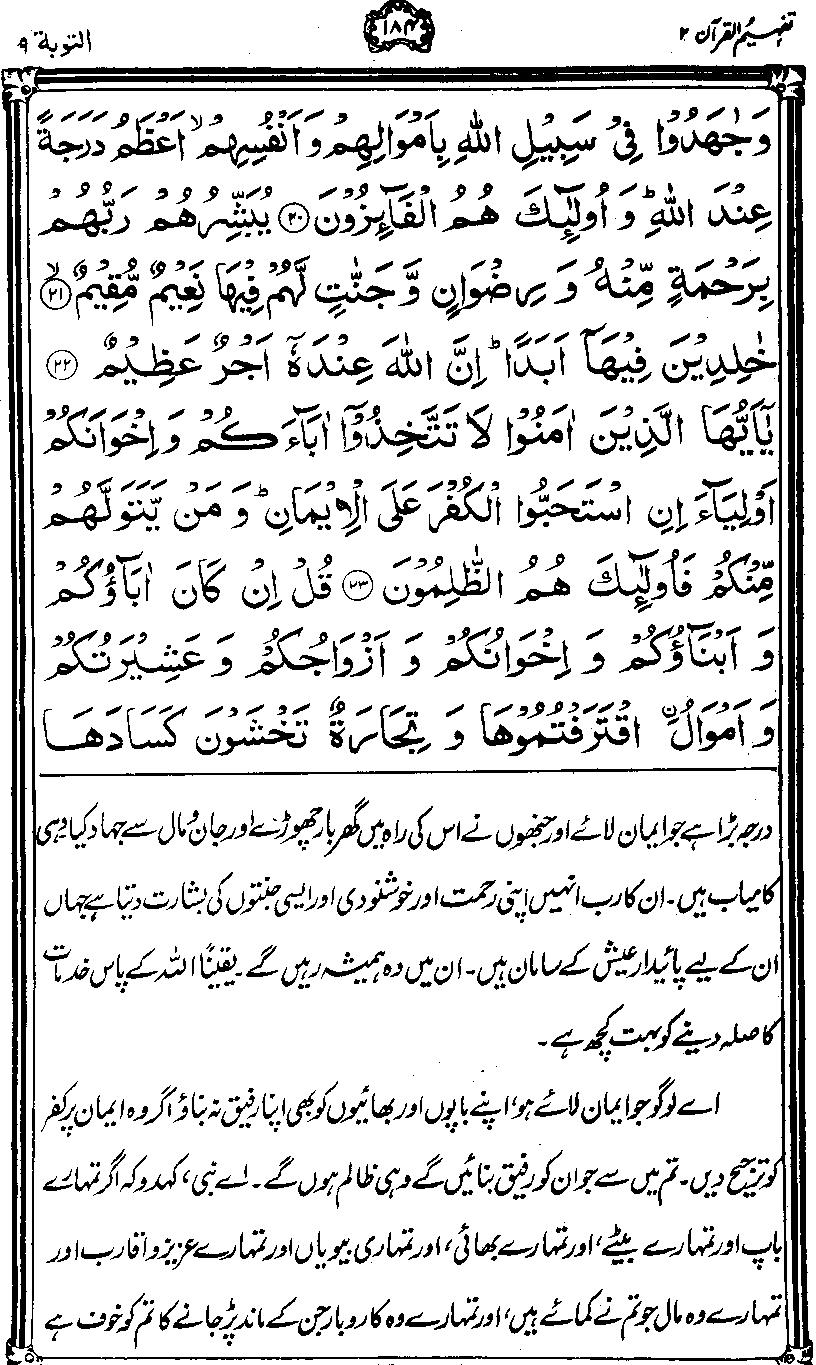 تفہیم القرآن ۲
۱۸۴
التوبة ۹
وَجٰهَدُوْا فِيْ سَبِيْلِ اللّٰهِ بِاَمْوَالِهِمْ وَاَنْفُسِهِمْ ۙ اَعْظَمُ دَرَجَةً
عِنْدَ اللّٰهِ ؕ وَ اُولٰٓئِكَ هُمُ الْفَآئِزُوْنَ ۝۲۰ يُبَشِّرُهُمْ رَبُّهُمْ
بِرَحْمَةٍ مِّنْهُ وَ رِضْوَانٍ وَّ جَنّٰتٍ لَّهُمْ فِيْهَا نَعِيْمٌ مُّقِيْمٌ ۙ ۝۲۱
خٰلِدِيْنَ فِيْهَآ اَبَدًا ؕ اِنَّ اللّٰهَ عِنْدَهٗٓ اَجْرٌ عَظِيْمٌ ۝۲۲
يٰٓاَيُّهَا الَّذِيْنَ اٰمَنُوْا لَا تَتَّخِذُوْٓا اٰبَآءَكُمْ وَاِخْوَانَكُمْ
اَوْلِيَآءَ اِنِ اسْتَحَبُّوا الْكُفْرَ عَلَى الْاِيْمَانِ ؕ وَ مَنْ يَّتَوَلَّهُمْ
مِّنْكُمْ فَاُولٰٓئِكَ هُمُ الظّٰلِمُوْنَ ۝۲۳ قُلْ اِنْ كَانَ اٰبَآؤُكُمْ
وَ اَبْنَآؤُكُمْ وَ اِخْوَانُكُمْ وَ اَزْوَاجُكُمْ وَ عَشِيْرَتُكُمْ
وَ اَمْوَالُ ۨاقْتَرَفْتُمُوْهَا وَ تِجَارَةٌ تَخْشَوْنَ كَسَادَهَا
درجہ بڑا ہے جو ایمان لائے اور جنھوں نے اس کی راہ میں گھر بار چھوڑے اور جان و مال سے جہاد کیا۔ وہی
کامیاب ہیں۔ ان کا رب انہیں اپنی رحمت اور خوشنودی اور ایسی جنتوں کی بشارت دیتا ہے جہاں
ان کے لیے پائیدار عیش کے سامان ہیں۔ ان میں وہ ہمیشہ رہیں گے۔ یقیناً اللہ کے پاس خدمات
کا صلہ دینے کو بہت کچھ ہے۔
اے لوگو جو ایمان لائے ہو، اپنے باپوں اور بھائیوں کو بھی اپنا رفیق نہ بناؤ اگر وہ ایمان پر کفر
کو ترجیح دیں۔ تم میں سے جو ان کو رفیق بنائیں گے وہی ظالم ہوں گے۔ اے نبی، کہدو کہ اگر تمہارے
باپ اور تمہارے بیٹے، اور تمہارے بھائی، اور تمہاری بیویاں اور تمہارے عزیز و اقارب اور
تمہارے وہ مال جو تم نے کمائے ہیں، اور تمہارے وہ کاروبار جن کے ماند پڑ جانے کا تم کو خوف ہے